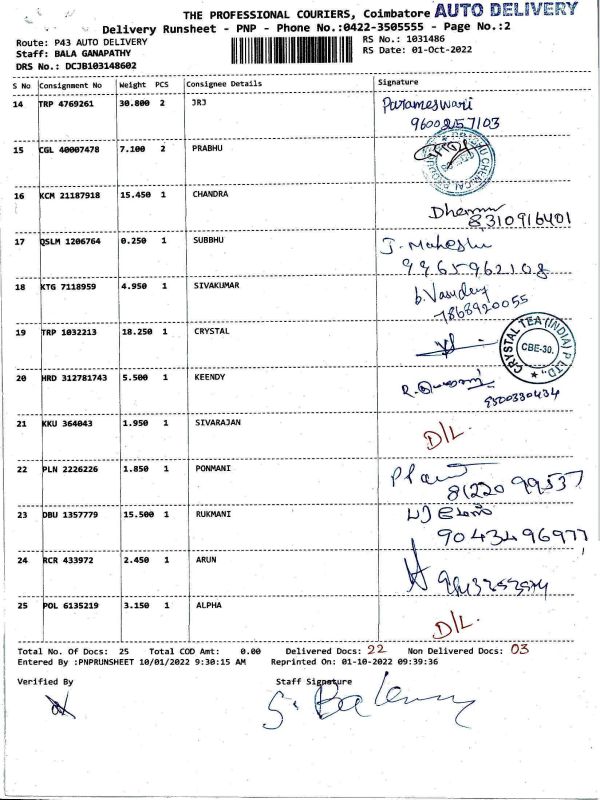 THE PROFESSIONAL COURIERS, Coimbatore AUTO DELIVERY
Delivery Runsheet - PNP - Phone No.:0422-3505555 - Page No.:2
Route: P43 AUTO DELIVERY
RS No.: 1031486
Staff: BALA GANAPATHY
RS Date: 01-Oct-2022
DRS No.: DCJB103148602
S No Consignment No Weight PCS Consignee Details Signature
14 TRP 4769261 30.800 2 JRJ Parameswari
9600257103
15 CGL 40007478 7.100 2 PRABHU
16 KCM 21187918 15.450 1 CHANDRA
8310916401
17 QSLM 1206764 0.250 1 SUBBHU J. Mahesh
9965962108
18 KTG 7118959 4.950 1 SIVAKUMAR b. Vasudev
7868920055
19 TRP 1032213 18.250 1 CRYSTAL
CRYSTAL TEA (INDIA) P LTD
CBE-30.
20 HRD 312781743 5.500 1 KEENDY
9500330434
21 KKU 364043 1.950 1 SIVARAJAN D/L.
22 PLN 2226226 1.850 1 PONMANI
8122099537
23 DBU 1357779 15.500 1 RUKMANI
9043496977
24 RCR 433972 2.450 1 ARUN
25 POL 6135219 3.150 1 ALPHA D/L.
Total No. Of Docs: 25 Total COD Amt: 0.00 Delivered Docs: 22 Non Delivered Docs: 03
Entered By :PNPRUNSHEET 10/01/2022 9:30:15 AM Reprinted On: 01-10-2022 09:39:36
Verified By Staff Signature